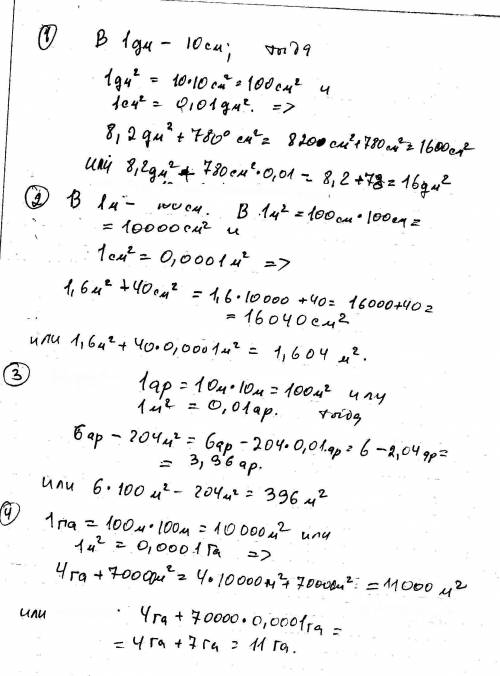 ① В 1дм – 10см; тогда
1дм² = 10·10см² = 100см² и
1см² = 0,01дм². =>
8,2дм² + 780см² = 820см² + 780см² = 1600см²
или 8,2дм² + 780см²·0,01 = 8,2 + 7,8 = 16дм²
② В 1м – 100см. В 1м² = 100см·100см =
= 10000см² и
1см² = 0,0001м² =>
1,6м² + 40см² = 1,6·10000 + 40 = 16000+40 =
= 16040см²
или 1,6м² + 40·0,0001м² = 1,604 м².
③
1ар = 10м·10м = 100м² или
1м² = 0,01ар. тогда
6ар – 204м² = 6ар – 204·0,01ар = 6 – 2,04ар =
= 3,96ар.
или 6·100м² – 204м² = 396м²
④
1га = 100м·100м = 10000м² или
1м² = 0,0001га =>
4га + 70000м² = 4·10000м² + 70000м² = 11000м²
или 4га + 70000·0,0001га =
= 4га + 7га = 11га.